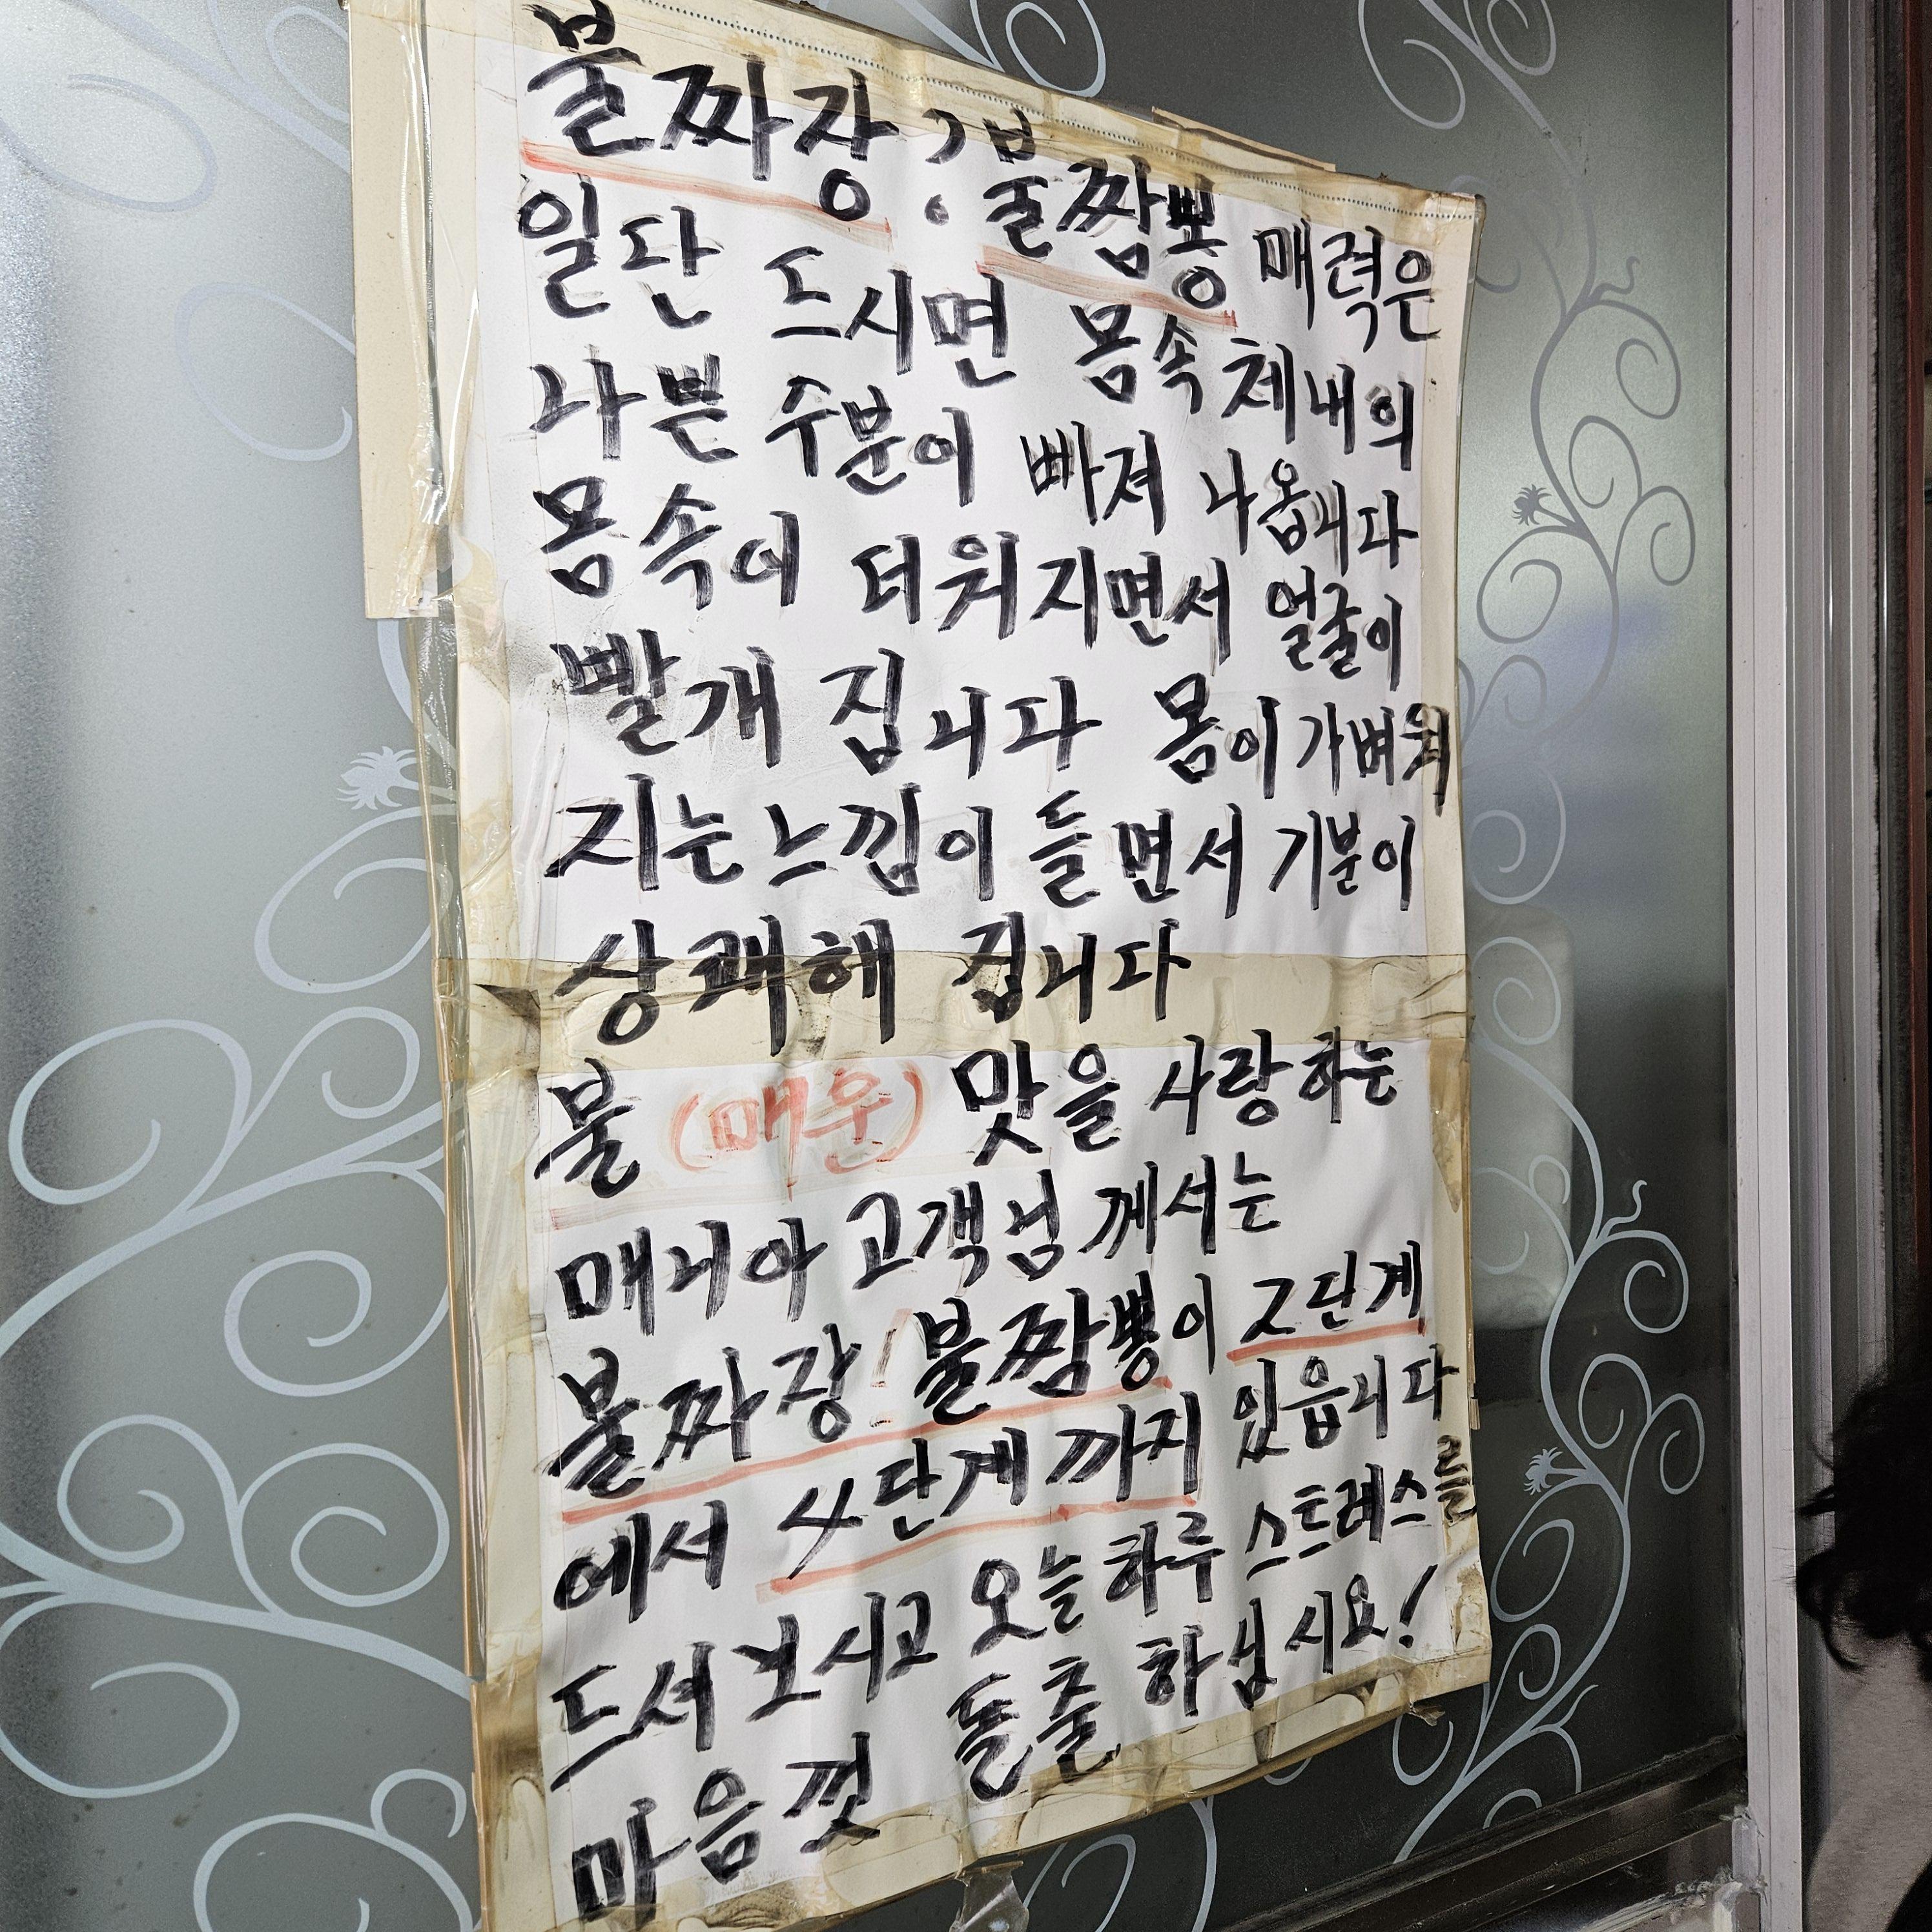 불짜장? 불짬뽕 매력은
일단 드시면 몸속 체내의
나쁜 수분이 빠져 나옵니다
몸속이 더워지면서 얼굴이
빨개 집니다 몸이 가벼워
지는 느낌이 들면서 기분이
상쾌해 집니다
불 (매운) 맛을 사랑하는
매니아 고객님 께서는
불짜장! 불짬뽕이 2단계
에서 4단계 까지 있읍니다
드셔 보시고 오늘 하루 스트레스를
마음껏 돌출 하십시요!